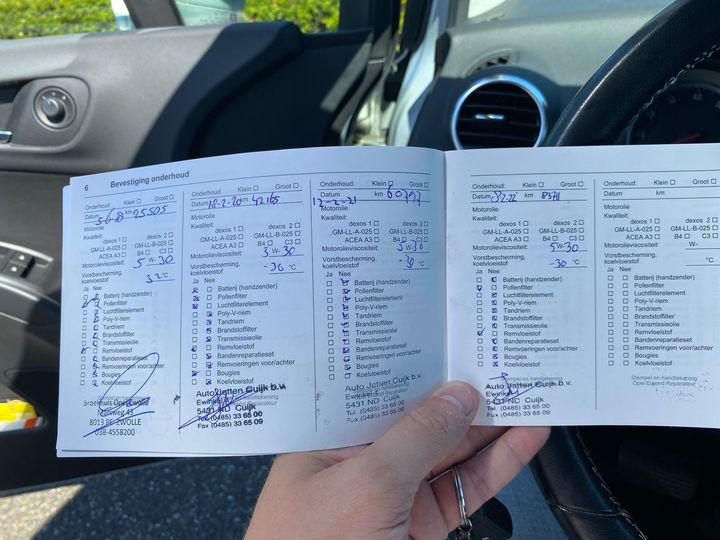 6 Bevestiging onderhoud
Onderhoud: Klein Groot
Datum km 25505
Motorolie
Kwaliteit:
dexos 1 dexos 2
GM-LL-A-025 GM-LL-B-025
ACEA A3 B4 C3
Motorolieviscositeit: 5 W- 30
Vorstbescherming,
koelvloeistof °C
Ja Nee
Batterij (handzender)
Pollenfilter
Luchtfilterelement
Poly-V-riem
Tandriem
Brandstoffilter
Transmissieolie
Remvloeistof
Bandenreparatieset
Remvoeringen voor/achter
Bougies
Koelvloeistof
8013 RE ZWOLLE
038-4558200
Onderhoud: Klein Groot
Datum km 42165
Motorolie
Kwaliteit:
dexos 1 dexos 2
GM-LL-A-025 GM-LL-B-025
ACEA A3 B4 C3
Motorolieviscositeit: 5 W- 30
Vorstbescherming,
koelvloeistof -30 °C
Ja Nee
Batterij (handzender)
Pollenfilter
Luchtfilterelement
Poly-V-riem
Tandriem
Brandstoffilter
Transmissieolie
Remvloeistof
Bandenreparatieset
Remvoeringen voor/achter
Bougies
Koelvloeistof
Auto Jetten Cuijk b.v.
Ewinkel
5431 ND Cuijk
Tel. (0485) 33 65 00
Fax (0485) 33 65 09
Onderhoud: Klein Groot
Datum km
Motorolie
Kwaliteit:
dexos 1 dexos 2
GM-LL-A-025 GM-LL-B-025
ACEA A3 B4 C3
Motorolieviscositeit: 5 W- 30
Vorstbescherming,
koelvloeistof -30 °C
Ja Nee
Batterij (handzender)
Pollenfilter
Luchtfilterelement
Poly-V-riem
Tandriem
Brandstoffilter
Transmissieolie
Remvloeistof
Bandenreparatieset
Remvoeringen voor/achter
Bougies
Koelvloeistof
Auto Jetten Cuijk b.v.
Ewinkel
5431 ND Cuijk
Tel. (0485) 33 65 00
Fax (0485) 33 65 09
Onderhoud: Klein Groot
Datum km 83711
Motorolie
Kwaliteit:
dexos 1 dexos 2
GM-LL-A-025 GM-LL-B-025
ACEA A3 B4 C3
Motorolieviscositeit: 5 W- 30
Vorstbescherming,
koelvloeistof -30 °C
Ja Nee
Batterij (handzender)
Pollenfilter
Luchtfilterelement
Poly-V-riem
Tandriem
Brandstoffilter
Transmissieolie
Remvloeistof
Bandenreparatieset
Remvoeringen voor/achter
Bougies
Koelvloeistof
Auto Jetten Cuijk b.v.
Ewinkel
5431 ND Cuijk
Tel. (0485) 33 65 00
Fax (0485) 33 65 09
Onderhoud: Klein
Datum km
Motorolie
Kwaliteit:
dexos 1
GM-LL-A-025
ACEA A3
Motorolieviscositeit: W-
Vorstbescherming,
koelvloeistof °C
Ja Nee
Batterij (handzender)
Pollenfilter
Luchtfilterelement
Poly-V-riem
Tandriem
Brandstoffilter
Transmissieolie
Remvloeistof
Bandenreparatieset
Remvoeringen voor/achter
Bougies
Koelvloeistof
Stempel en handtekening
Opel Erkend Reparateur